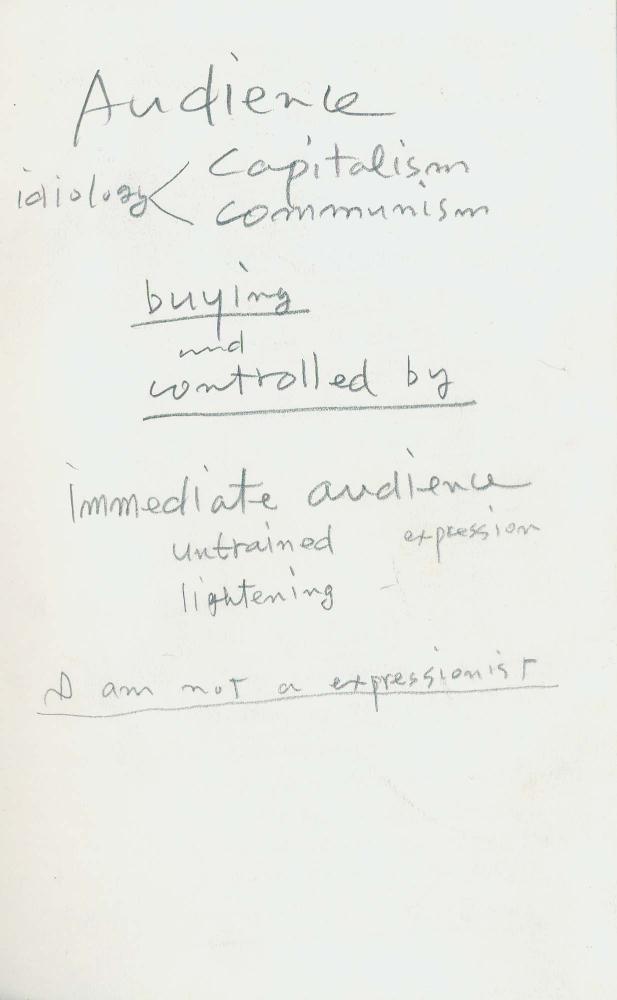 Audience
idiology < Capitalism
communism
buying
and
controlled by
immediate audience
untrained expression
lightening
I am not a expressionist